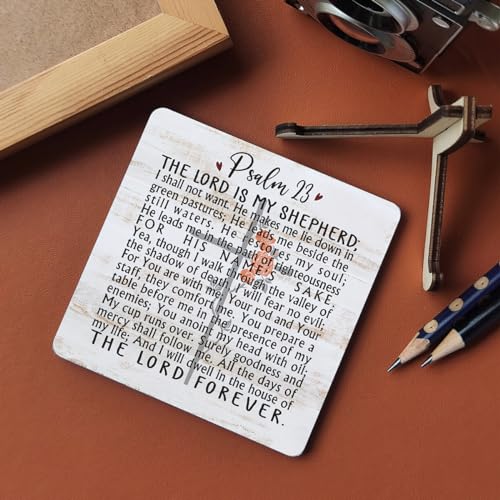 Psalm 23
THE LORD IS MY SHEPHERD;
I shall not want. He makes me lie down in
green pastures; He leads me beside the
still waters. He restores my soul;
He leads me in the paths of righteousness
FOR HIS NAME'S SAKE.
Yea, though I walk through the valley of
the shadow of death, I will fear no evil;
For You are with me; Your rod and Your
staff, they comfort me. You prepare a
table before me in the presence of my
enemies; You anoint my head with oil;
My cup runs over. Surely goodness and
mercy shall follow me. All the days of
my life; And I will dwell in the house of
THE LORD FOREVER.